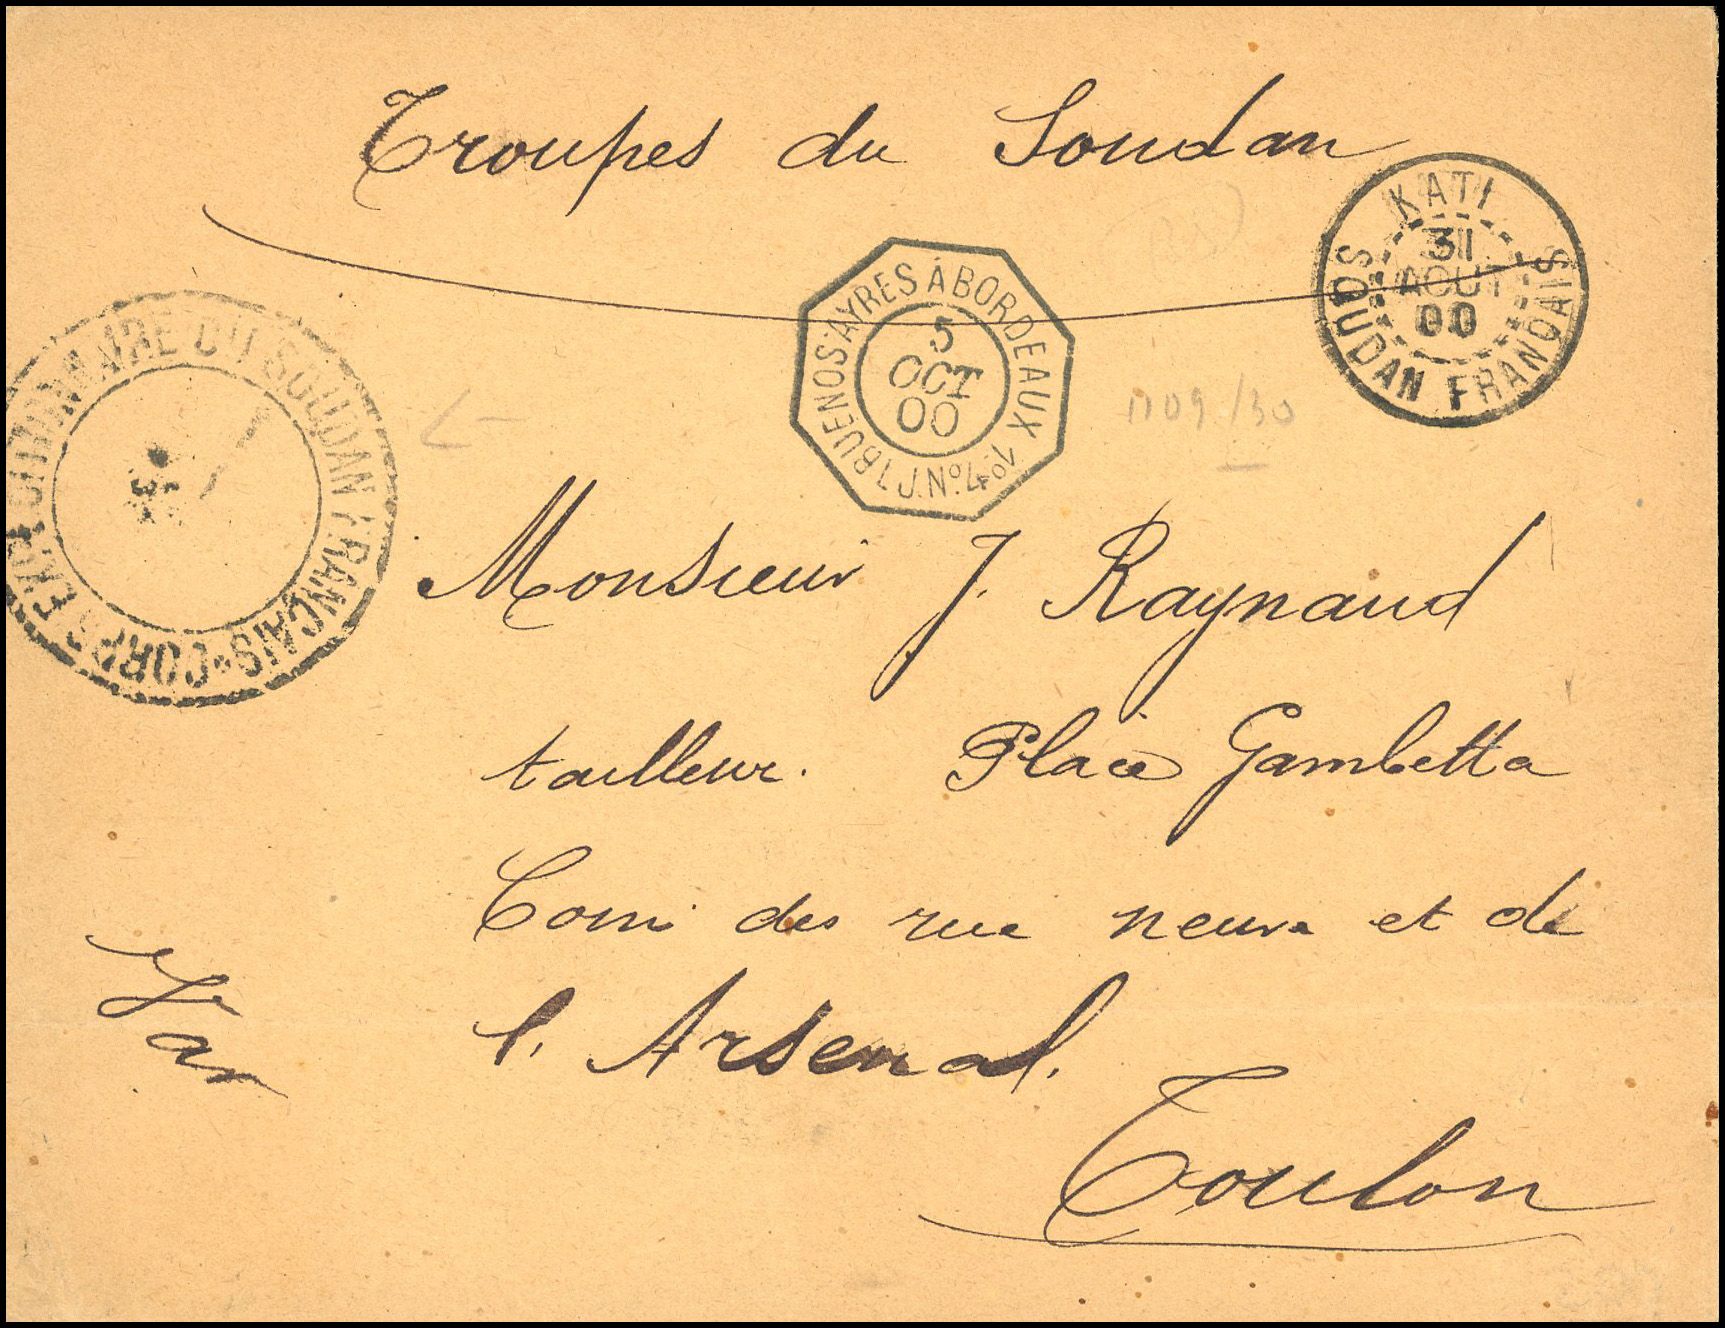 Troupes du Soudan
KATI
31
AOUT
00
SOUDAN FRANÇAIS
BUENOS-AYRES À BORDEAUX
5
OCT
00
L.J.Nº.4
CORPS EXPÉDITIONNAIRE DU SOUDAN FRANÇAIS
1109/30
Monsieur J. Raynaud
tailleur. Place Gambetta
Coin des rue neuve et de
l'Arsenal.
Toulon
Var